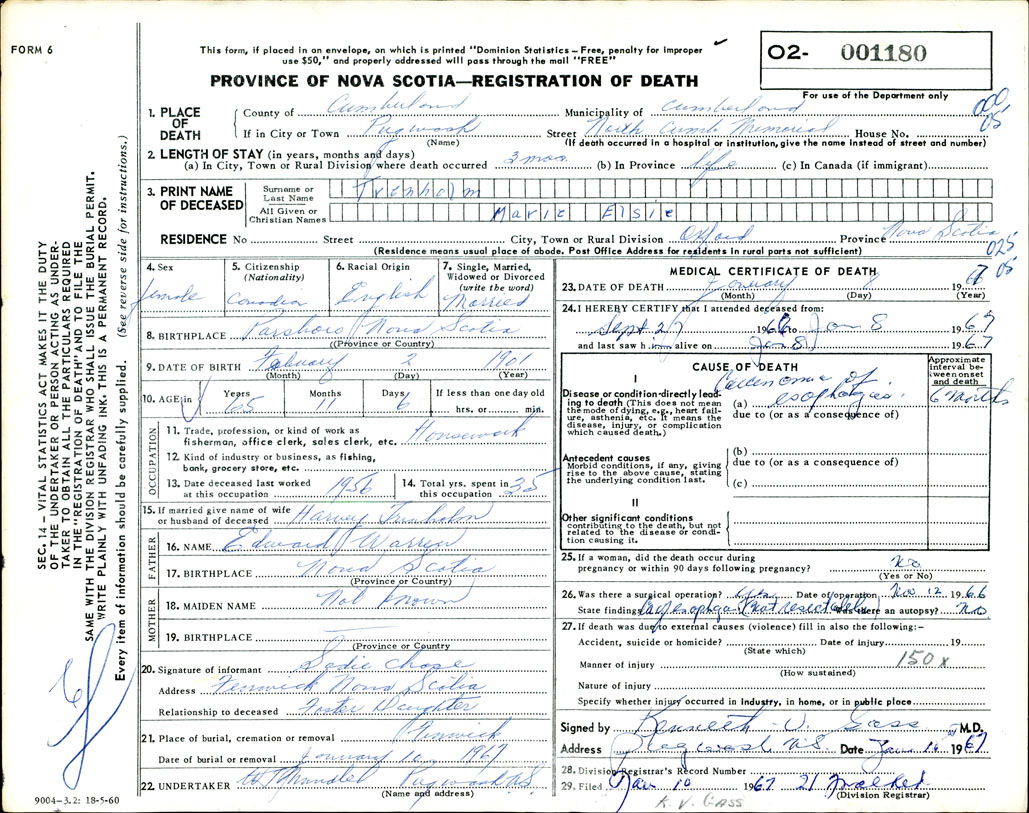 FORM 6
This form, if placed in an envelope, on which is printed "Dominion Statistics – Free, penalty for improper
use $50," and properly addressed will pass through the mail "FREE"
PROVINCE OF NOVA SCOTIA—REGISTRATION OF DEATH
O2- 001180
For use of the Department only
1. PLACE OF DEATH
County of Cumberland Municipality of Cumberland
If in City or Town Pugwash Street North Cumb Memorial House No.
(Name) (If death occurred in a hospital or institution, give the name instead of street and number)
2. LENGTH OF STAY (in years, months and days)
(a) In City, Town or Rural Division where death occurred 3 mos. (b) In Province life (c) In Canada (if immigrant)
3. PRINT NAME OF DECEASED
Surname or Last Name Trenholm
All Given or Christian Names Marie Elsie
RESIDENCE No Street City, Town or Rural Division Oxford Province Nova Scotia
(Residence means usual place of abode. Post Office Address for residents in rural parts not sufficient)
025
05
4. Sex female
5. Citizenship (Nationality) Canadian
6. Racial Origin English
7. Single, Married, Widowed or Divorced (write the word) Married
8. BIRTHPLACE Parsboro Nova Scotia
(Province or Country)
9. DATE OF BIRTH February 2 1901
(Month) (Day) (Year)
10. AGE in Years 65 Months 11 Days 6 If less than one day old hrs. or min.
OCCUPATION
11. Trade, profession, or kind of work as fisherman, office clerk, sales clerk, etc. Housework
12. Kind of industry or business, as fishing, bank, grocery store, etc.
13. Date deceased last worked at this occupation 1956
14. Total yrs. spent in this occupation 35
15. If married give name of wife or husband of deceased Harvey Trenholm
FATHER
16. NAME Edward Warren
17. BIRTHPLACE Nova Scotia
(Province or Country)
MOTHER
18. MAIDEN NAME Not Known
19. BIRTHPLACE
(Province or Country
20. Signature of informant Sadie Chase
Address Fenwick Nova Scotia
Relationship to deceased Foster Daughter
21. Place of burial, cremation or removal Fenwick
Date of burial or removal January 10 1967
22. UNDERTAKER Pugwash NS
(Name and address)
MEDICAL CERTIFICATE OF DEATH
23. DATE OF DEATH January 8 1967
(Month) (Day) (Year)
24. I HEREBY CERTIFY that I attended deceased from:
Sept 27 1966 to Jan 8 1967
and last saw h im alive on Jan 8 1967
CAUSE OF DEATH
Approximate interval between onset and death
I
Disease or condition directly leading to death (This does not mean the mode of dying, e.g., heart failure, asthenia, etc. It means the disease, injury, or complication which caused death.)
(a) Carcinoma of esophagus 6 months
due to (or as a consequence of)
Antecedent causes
Morbid conditions, if any, giving rise to the above cause, stating the underlying condition last.
(b)
due to (or as a consequence of)
(c)
II
Other significant conditions contributing to the death, but not related to the disease or condition causing it.
25. If a woman, did the death occur during
pregnancy or within 90 days following pregnancy? No
(Yes or No)
26. Was there a surgical operation? Yes Date of operation Nov 12 1966
State findings Ca esophagus (not resectable) Was there an autopsy? No
27. If death was due to external causes (violence) fill in also the following:–
Accident, suicide or homicide? Date of injury 19
(State which)
150 x
Manner of injury
(How sustained)
Nature of injury
Specify whether injury occurred in industry, in home, or in public place
Signed by Kenneth V. Gass M.D.
Address Pugwash N.S. Date Jan 10 1967
28. Division Registrar's Record Number
29. Filed Jan 10 1967
(Division Registrar)
K. V. GASS
SEC. 14 – VITAL STATISTICS ACT MAKES IT THE DUTY
OF THE UNDERTAKER OR PERSON ACTING AS UNDER-
TAKER TO OBTAIN ALL THE PARTICULARS REQUIRED
IN THE "REGISTRATION OF DEATH" AND TO FILE THE
SAME WITH THE DIVISION REGISTRAR WHO SHALL ISSUE THE BURIAL PERMIT.
WRITE PLAINLY WITH UNFADING INK. THIS IS A PERMANENT RECORD.
Every item of information should be carefully supplied. (See reverse side for instructions.)
9004–3.2: 18-5-60